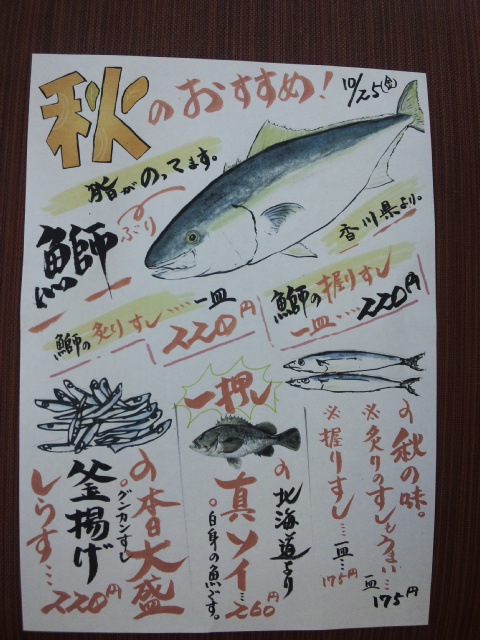 秋のおすすめ! 10/25(金)
脂がのってます。
鰤 ぶり
香川県より。
鰤の炙りすし……一皿 220円
鰤の握りすし
一皿……220円
の秋の味。
※炙りのすしもうまい…一皿 175円
※握りすし…一皿…175円
一押し
の北海道より
真ソイ…260円
。白身の魚です。
の本日大盛
。グンカンすし
釜揚げ
しらす…220円